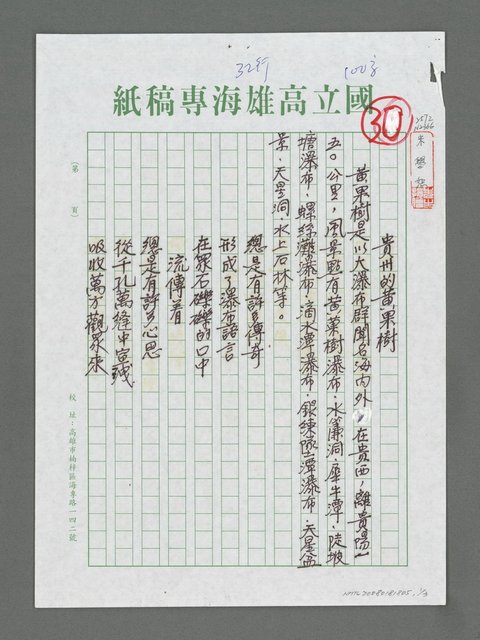 32行
100字
國立高雄海專稿紙
30
貴州的黃果樹
黃果樹是以大瀑布群聞名海內外,在貴西,離貴陽一
五〇公里,風景點有黃菓樹瀑布、水簾洞、犀牛潭、陡坡
塘瀑布、螺絲灘瀑布、滴水潭瀑布、銀練墜潭瀑布、天星盆
景、天星洞、水上石林等。
總是有許多傳奇
形成了瀑布語言
在眾石礫礫的口中
流傳著
總是有許多心思
從千孔萬縫中宣洩
吸收萬方觀眾來
(第 頁)
校址:高雄市楠梓區海專路一四二號
NMTL20080181805, 1/3